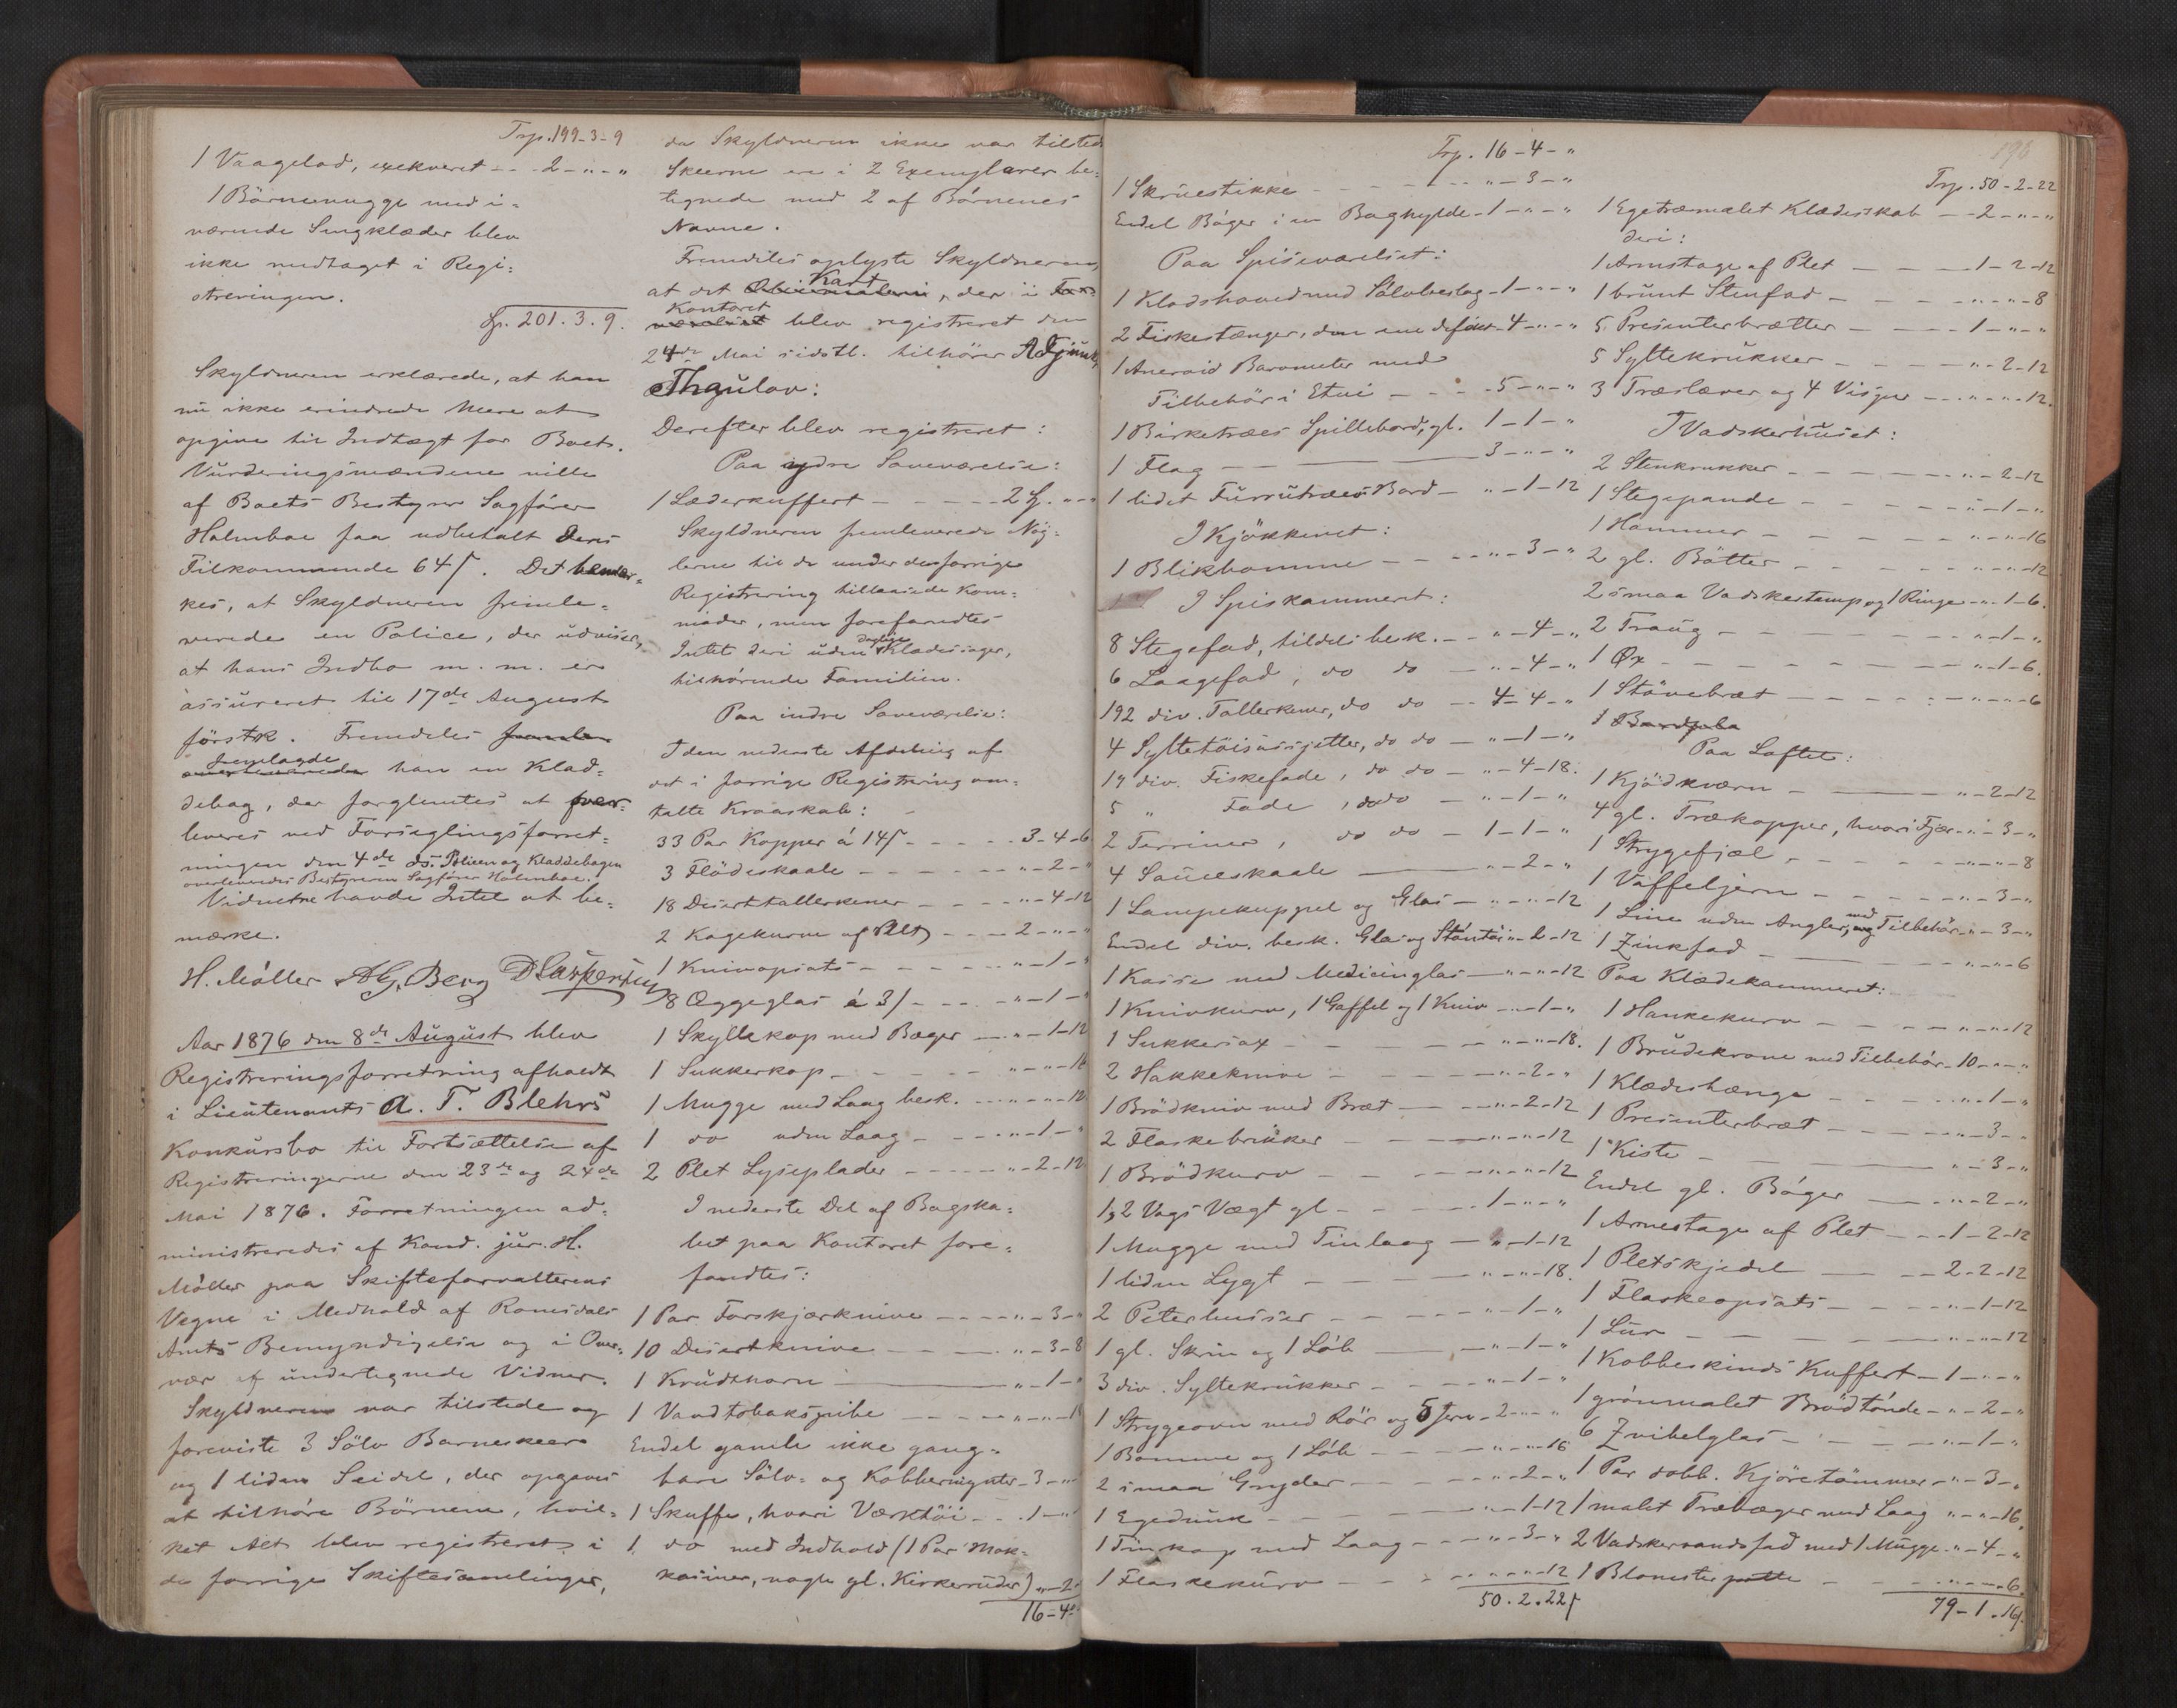 Trp. 199-3-9
1 Vaagelod, exekveret - - - 2 - " - "
1 Börnevugge med i=
værende Sengklæder blev
ikke medtaget i Regi=
streringen.
Sp. 201. 3. 9.
Skyldneren erklærede, at han
nu ikke erindrede mere at
opgive til Indtægt for Boet.
Vurderingsmændene ville
af Boets Bestyrer Sagförer
Holmboe faa udbetalt deres
Tilkommende 64 ſ. Det bemær=
kes, at Skyldneren fremle=
verede en Police, der udviser,
at hans Indbo m. m. er
assureret til 17de August
förstk. Fremdeles
fremlagde han en Klad=
debog, der forglemtes at over=
leveres ved Forseglingsforret=
ningen den 4de ds. Policen og Kladdebogen
overleveredes Bestyreren Sagförer Holmboe.
Vidnerne havde Intet at be=
mærke.
H. Möller A G. Berg
Aar 1876 den 8de August blev
Registreringsforretning afholdt
i Lieutenants A. T. Blehrs
Konkursbo til Fortsættelse af
Registreringerne den 23de og 24de
Mai 1876. Forretningen ad=
ministreredes af Kand. jur. H.
Möller paa Skifteforvalterens
Vegne i Medhold af Romsdals
Amts Bemyndigelse og i Over=
vær af undertegnede Vidner.
Skyldneren var tilstede og
foreviste 3 Sölv Barneskeer
og 1 liden Seidel, der opgaves
at tilhöre Börnene, hvil=
ket Alt blev registreret i
de forrige Skiftesamlinger,
da Skyldneren ikke var tilsted
Skeerne ere i 2 Exemplarer be=
tegnede med 2 af Börnenes
Navne.
Fremdeles oplyste Skyldneren,
at det Kart, der i
Kontoret blev registreret den
24de Mai sidstl. tilhörer Adjunkt
Thaulov:
Derefter blev registreret:
Paa ydre Soveværelse:
1 Læderkuffert - - - - - 2 Sp. " - "
Skyldneren fremleverede Nög=
lerne til de under den forrige
Registrering tillaasede Kom=
moder, men forefandtes
Intet deri uden daglige Klædessager,
tilhörende Familien.
Paa indre Soveværelse:
I den nederste Afdeling af
det i forrige Registrering om=
talte Kroaskab:
33 Par Kopper á 14 ſ - - - - - 3-4-6
3 Flödeskaale - - - - - - " - 2 - "
18 Deserttallerkener - - - - " - 4-12
2 Kagekurve af Plet - - - 2 - " - "
1 Knivopsats - - - - - - " - 1 - "
8 Æggeglas á 3 ſ - - - - " - 1 - "
1 Skyllekop med Bæger - - - " - 1-12
1 Sukkerkop - - - - - " - " - 16
1 Mugge med Laag besk. - - - " - " - 12
1 do uden Laag - - - - " - 1 - "
2 Plet Lyseplader - - - - - " - 2-12
I nederste Del af Bogska=
bet paa Kontoret fore=
fandtes:
1 Par Forskjærknive - - - - " - 3 - "
10 Desertknive - - - - " - 3-8
1 Krudthorn - - - " - 1 - "
1 Vandtobakspibe - - - - " - "
Endel gamle ikke gang=
bare Sölv= og Kobbermynter - 3 - " - "
1 Skuffe, hvori Værktöi - - - 1 - " - "
1 do med Indhold (1 Par Mok=
kasiner, nogle gl. Kirkeruder) " - 2 -
16-4-"
Trp. 16-4-"
1 Skruestikke - - - - - " - 3 - "
Endel Böger i en Boghylde - 1 - " - "
Paa Spiseværelset:
1 Kladshoved med Sölvbeslag - 1 - " - "
2 Fiskestænger, den ene defekt - 4 - " - "
1 Aneroid Barometer med
Tilbehör i Etui - - - - 5 - " - "
1 Birketræes Spillebord, gl. 1 - 1 - "
1 Flag - - - 3 - " - "
1 lidet Furrutræes Bord - " - 1 - 12
I Kjökkenet:
1 Blikbomme - - - - " - 3 - "
I Spiskammeret:
8 Stegefad, tildels besk. - - " - 4 - "
6 Laagefad, do do - " - 4 - "
192 div. Tallerkener, do do - - 4-4-"
4 Syltetöisassjetter, do do - " - 1 - "
19 div. Fiskefade, do do - " - 4-18.
5 " Fade, do do - " - 1 - "
2 Terriner, do do - 1 - 1 - "
4 Sauceskaale - - " - 2 - "
1 Lampekuppel og Glas - " - " - 12
Endel div. besk. Glas og Stöntöi " - 2 - 12
1 Kasse med Medicinglas - " - " - 12
1 Knivkurv, 1 Gaffel og 1 Kniv - " - 1 - "
1 Sukkersax - - - - " - " - 18.
2 Hakkeknive - - - " - 2 - "
1 Brödkniv med Bræt - - " - 2 - 12
2 Flaskebrikker - - " - " - 12
1 Brödkurv - - - " - " - 12
1, 2 Vogs Vægt gl - - - - 1 - " - "
1 Mugge med Tinlaag - - " - 1 - 12
1 liden Lygt - - - " - " - 18.
2 Peterhusser - - - - " - 1 - "
1 gl. Skrin og 1 Löb - - " - 1 - "
3 div. Syltekrukker - - - " - 1 - "
1 Strygeovn med Rör og 5 Jern - 2 - " - "
1 Bomme og 1 Löb - - - " - " - 16
2 smaa Gryder - - - - " - 2 - "
1 Egedunk - - - - " - 1 - 12
1 Tinkop med Laag - - - " - 3 - "
1 Flaskekurv - - - " - " - 12
50. 2. 22 ſ
196
Trp. 50-2-22
1 Egetræmalet Klædesskab - - 2 - " - "
deri:
1 Armstage af Plet - - - 1 - 2 - 12
1 brunt Stenfad - - - - " - " - 8
5 Presenterbrætter - - - 1 - " - "
5 Syltekrukker - - - - " - 2 - 12
3 Træslæver og 4 Visper - - - " - " - 12.
I Vadskerhuset:
2 Stenkrukker - - - - " - 2 - 12
1 Stegepande - - - - - " - 1 - "
1 Hammer - - - - - " - " - 16
2 gl. Bötter - - - - - " - " - 12
2 smaa Vadskestamp og 1 Ringe - " - 1 - 6.
2 Traug - - - " - 1 - "
1 Øx - - - - - - " - 1 - 6.
1 Stövebræt - - - - - " - " - 6
1
Paa Loftet:
1 Kjödkværn - - - " - 2 - 12
4 gl. Trækopper, hvori Fjær - " - 3 - "
1 Strygefjæl - - - - - " - " - 8
1 Vaffeljern - - - - " - 3 - "
1 Line uden Angler, med Tilbehör - " - 3 - "
1 Zinkfad - - - " - " - 6
Paa Klædekammeret:
1 Hankekurv - - - - " - " - 12
1 Brudekrone med Tilbehör - 10 - " - "
1 Klædeshænge - - - - " - 1 - "
1 Presenterbræt - - - - " - 3 - "
1 Kiste - - - " - 3 - "
Endel gl. Böger - - " - 2 - "
1 Armestage af Plet - - - 1 - 2 - 12
1 Pletskjedel - - - 2 - 2 - 12
1 Flaskeopsats - - - - " - 1 - 12
1 Lur - - - - " - " - 12
1 Kobbeskinds Kuffert - 1 - " - "
1 grönmalet Brödtönde - " - 2 - "
6 Zvibelglas - - - - " - 1 - "
1 Par dobb. Kjöretömmer - " - 3 - "
1 malet Træbæger med Laag " - " - 16.
2 Vadskervandsfad med 1 Mugge - " - 4 - "
1 Blomsterpotte - - " - " - 6.
79 - 1. 16 ſ.